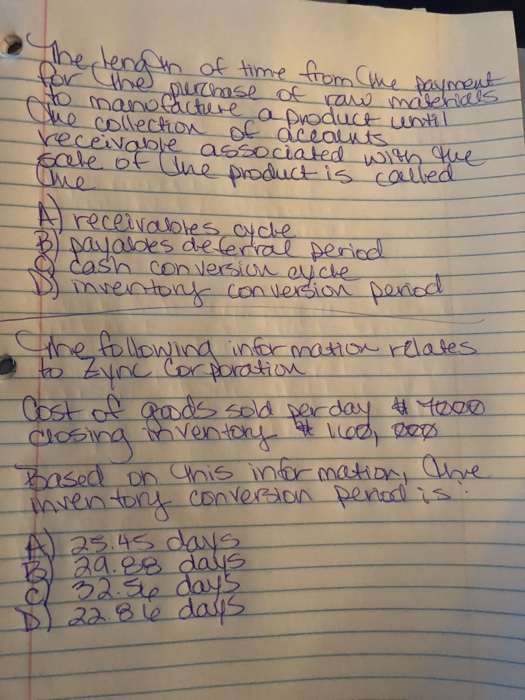 The length of time from the payment
for the purchase of raw materials
to manufacture a product until
the collection of accounts
receivable associated with the
sale of the product is called
the
A) receivables cycle
B) payables deferral period
C) cash conversion cycle
D) inventory conversion period
The following information relates
to Zync Corporation
Cost of goods sold per day $ 7000
closing inventory $ 160,000
Based on this information, the
inventory conversion period is:
A) 25.45 days
B) 29.88 days
C) 32.56 days
D) 22.86 days